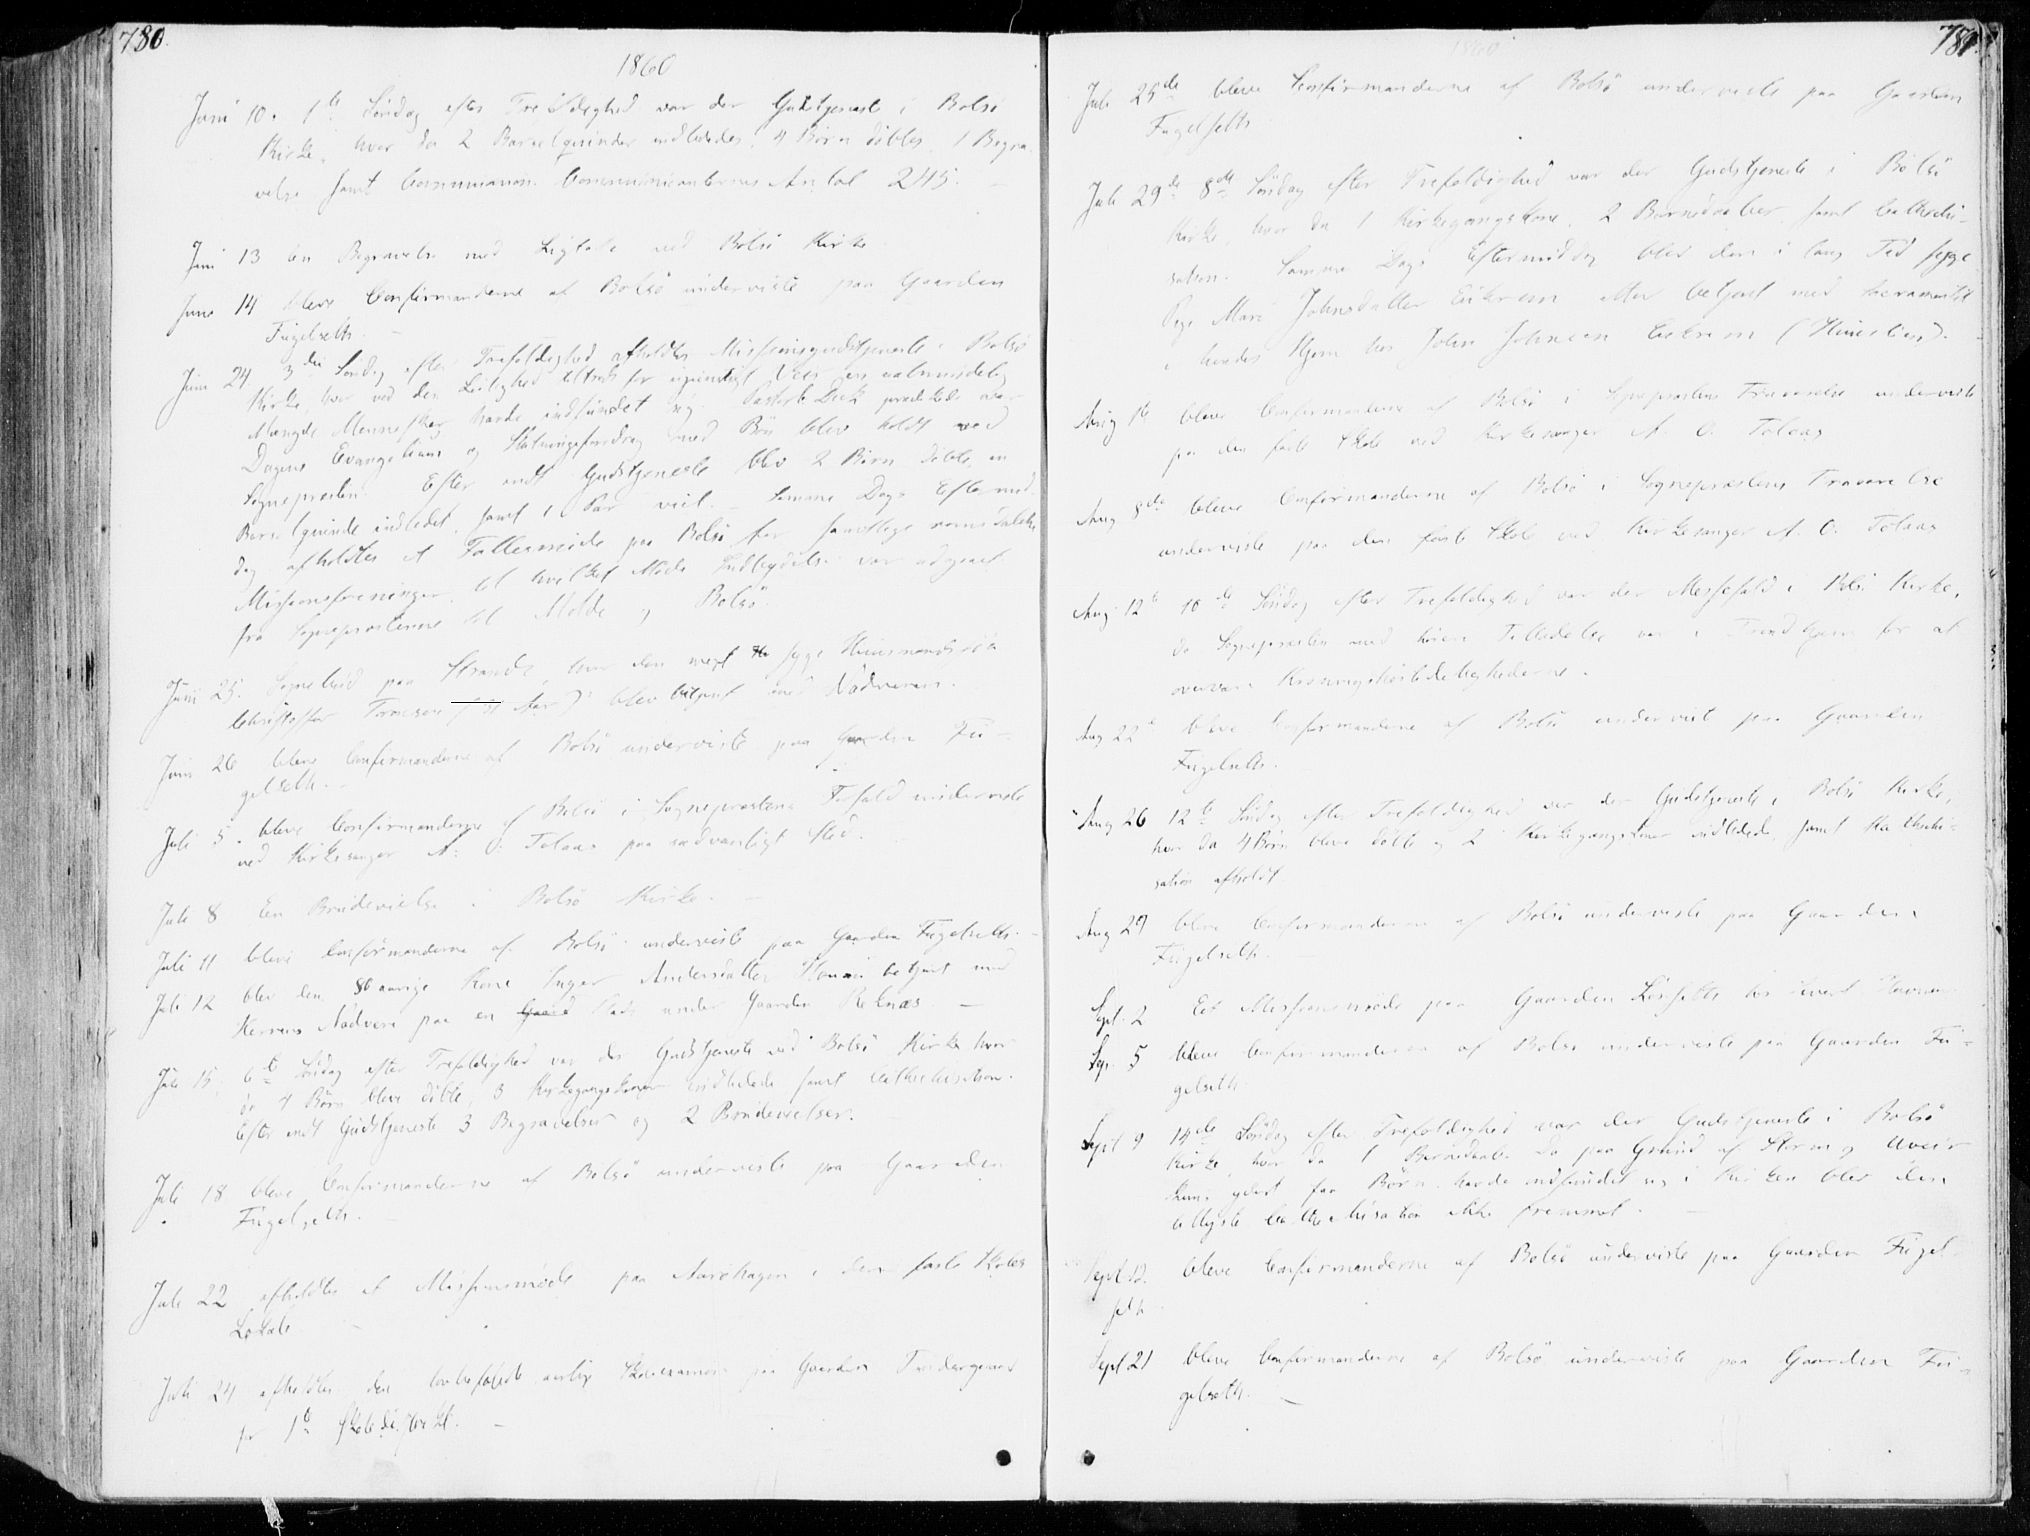 780.
1860
Juni 10. 1ste Søndag efter Trefoldighed var der Gudstjeneste i Bolsö
Kirke, hvor da 2 Barselqvinder indlededes, 4 Børn döbtes, 1 Begra-
velse samt Communion. Communicanternes Antal 245. –
Juni 13 en Begravelse med Ligtale ved Bolsö Kirke
Juni 14 bleve Confirmanderne af Bolsö underviste paa Gaarden
Fugelseth. –
Juni 24 3die Søndag efter Trefoldighed afholdtes Missionsgudstjeneste i Bolsö
Kirke, hvor ved den Leilighed tiltrods for ugunstigt Veir en ualmindelig
Mængde Mennesker havde indfundet sig. Pastor prædikede over
Dagens Evangelium og Slutningsforedrag med Bön blev holdt ved
Sognepresten. Efter endt Gudstjeneste blev 2 Börn döbte, en
Barselqvinde indledet, samt 1 Par viet. – Samme Dags Eftermid-
dag afholdtes et Fællesmöde paa Bolsö for samtlige romsdalske
Missionsforeninger, til hvilket Möde Indbydelse var udgaaet
fra Sognepræsterne til Molde og Bolsö.
Juni 25. Sognebud paa Strande, hvor den meget syge Huusmand
Christoffer blev betjent med Nadveren.
Juni 26 bleve Confirmanderne af Bolsö underviste paa Gaarden Fu-
gelseth. –
Juli 5. bleve Confirmanderne af Bolsö i Sogneprestens Forfald underviste
ved Kirkesanger A. O. Tolaas paa sædvanligt Sted.
Juli 8 En Brudevielse i Bolsö Kirke. –
Juli 11 bleve Confirmanderne af Bolsö underviste paa Gaarden Fugelseth. –
Juli 12 blev den 80 aarige Kone Inger Andersdatter betjent med
Herrens Nadvere paa en Gaard Plads under Gaarden Reknæs. –
Juli 15. 6te Söndag efter Trefoldighed var der Gudstjeneste ved Bolsö Kirke hvor
da 4 Börn bleve döbte, 3 Kirkegangskoner indledede samt Cathechisation.
Efter endt Gudstjeneste 3 Begravelser og 2 Brudevielser.
Juli 18 bleve Confirmanderne af Bolsö underviste paa Gaarden
Fugelseth. –
Juli 22 afholdtes et Missionsmöde paa Aaröhagen i den faste Skoles
Lokale. –
Juli 24 afholdtes den aarlig Skoleexamen paa Gaarden
for 1ste Skoledistrikt. –
781.
1860
Juli 25de bleve Confirmanderne af Bolsö underviste paa Gaarden
Fugelseth
Juli 29de 8de Söndag efter Trefoldighed var der Gudstjeneste i Bolsö
Kirke, hvor da 1 Kirkegangskone, 2 Barnedaaber samt Cathechi-
sation. Samme Dags Eftermiddag blev den i lang Tid syge
Pige Mari Johnsdatter Eikrem betjent med Sacramentet
i hendes Hjem hos John Johnsen Eikrem
Aug 1te bleve Confirmanderne af Bolsö i Sogneprestens Fraværelse underviste
paa den faste Skole ved Kirkesanger A. O. Tolaas
Aug 8de bleve Confirmanderne af Bolsö i Sogneprestens Fraværelse
underviste paa den faste Skole ved Kirkesanger A. O. Tolaas
Aug 12te 10de Söndag efter Trefoldighed var der Messefald i Bolsö Kirke,
da Sognepresten med höiere Tilladelse var i Trondhjem for at
overvære Kroningshöitidelighederne.
Aug 22de bleve Confirmanderne af Bolsö underviste paa Gaarden
Fugelseth.
Aug 26 12te Söndag efter Trefoldighed var der Gudstjeneste i Bolsö Kirke,
hvor da 4 Börn bleve döbte og 2 Kirkegangskoner indledede, samt Kathechi-
sation afholdt
Aug 29 bleve Confirmanderne af Bolsö underviste paa Gaarden
Fugelseth. –
Sept. 2 Et Missionsmöde paa Gaarden hos
Sep. 5 bleve Confirmanderne af Bolsö underviste paa Gaarden Fu-
gelseth
Sept 9 14de Söndag efter Trefoldighed var der Gudstjeneste i Bolsö
Kirke, hvor da 1 Barnedaab. Da paa Grund af Storm og Uveir
kun faa Börn havde indfundet sig i Kirken blev den
tillyste Cathechisation ikke fremmet. –
Sept 12. bleve Confirmanderne af Bolsö underviste paa Gaarden Fugel-
seth
Sept 21 bleve Confirmanderne af Bolsö underviste paa Gaarden Fu-
gelseth. –